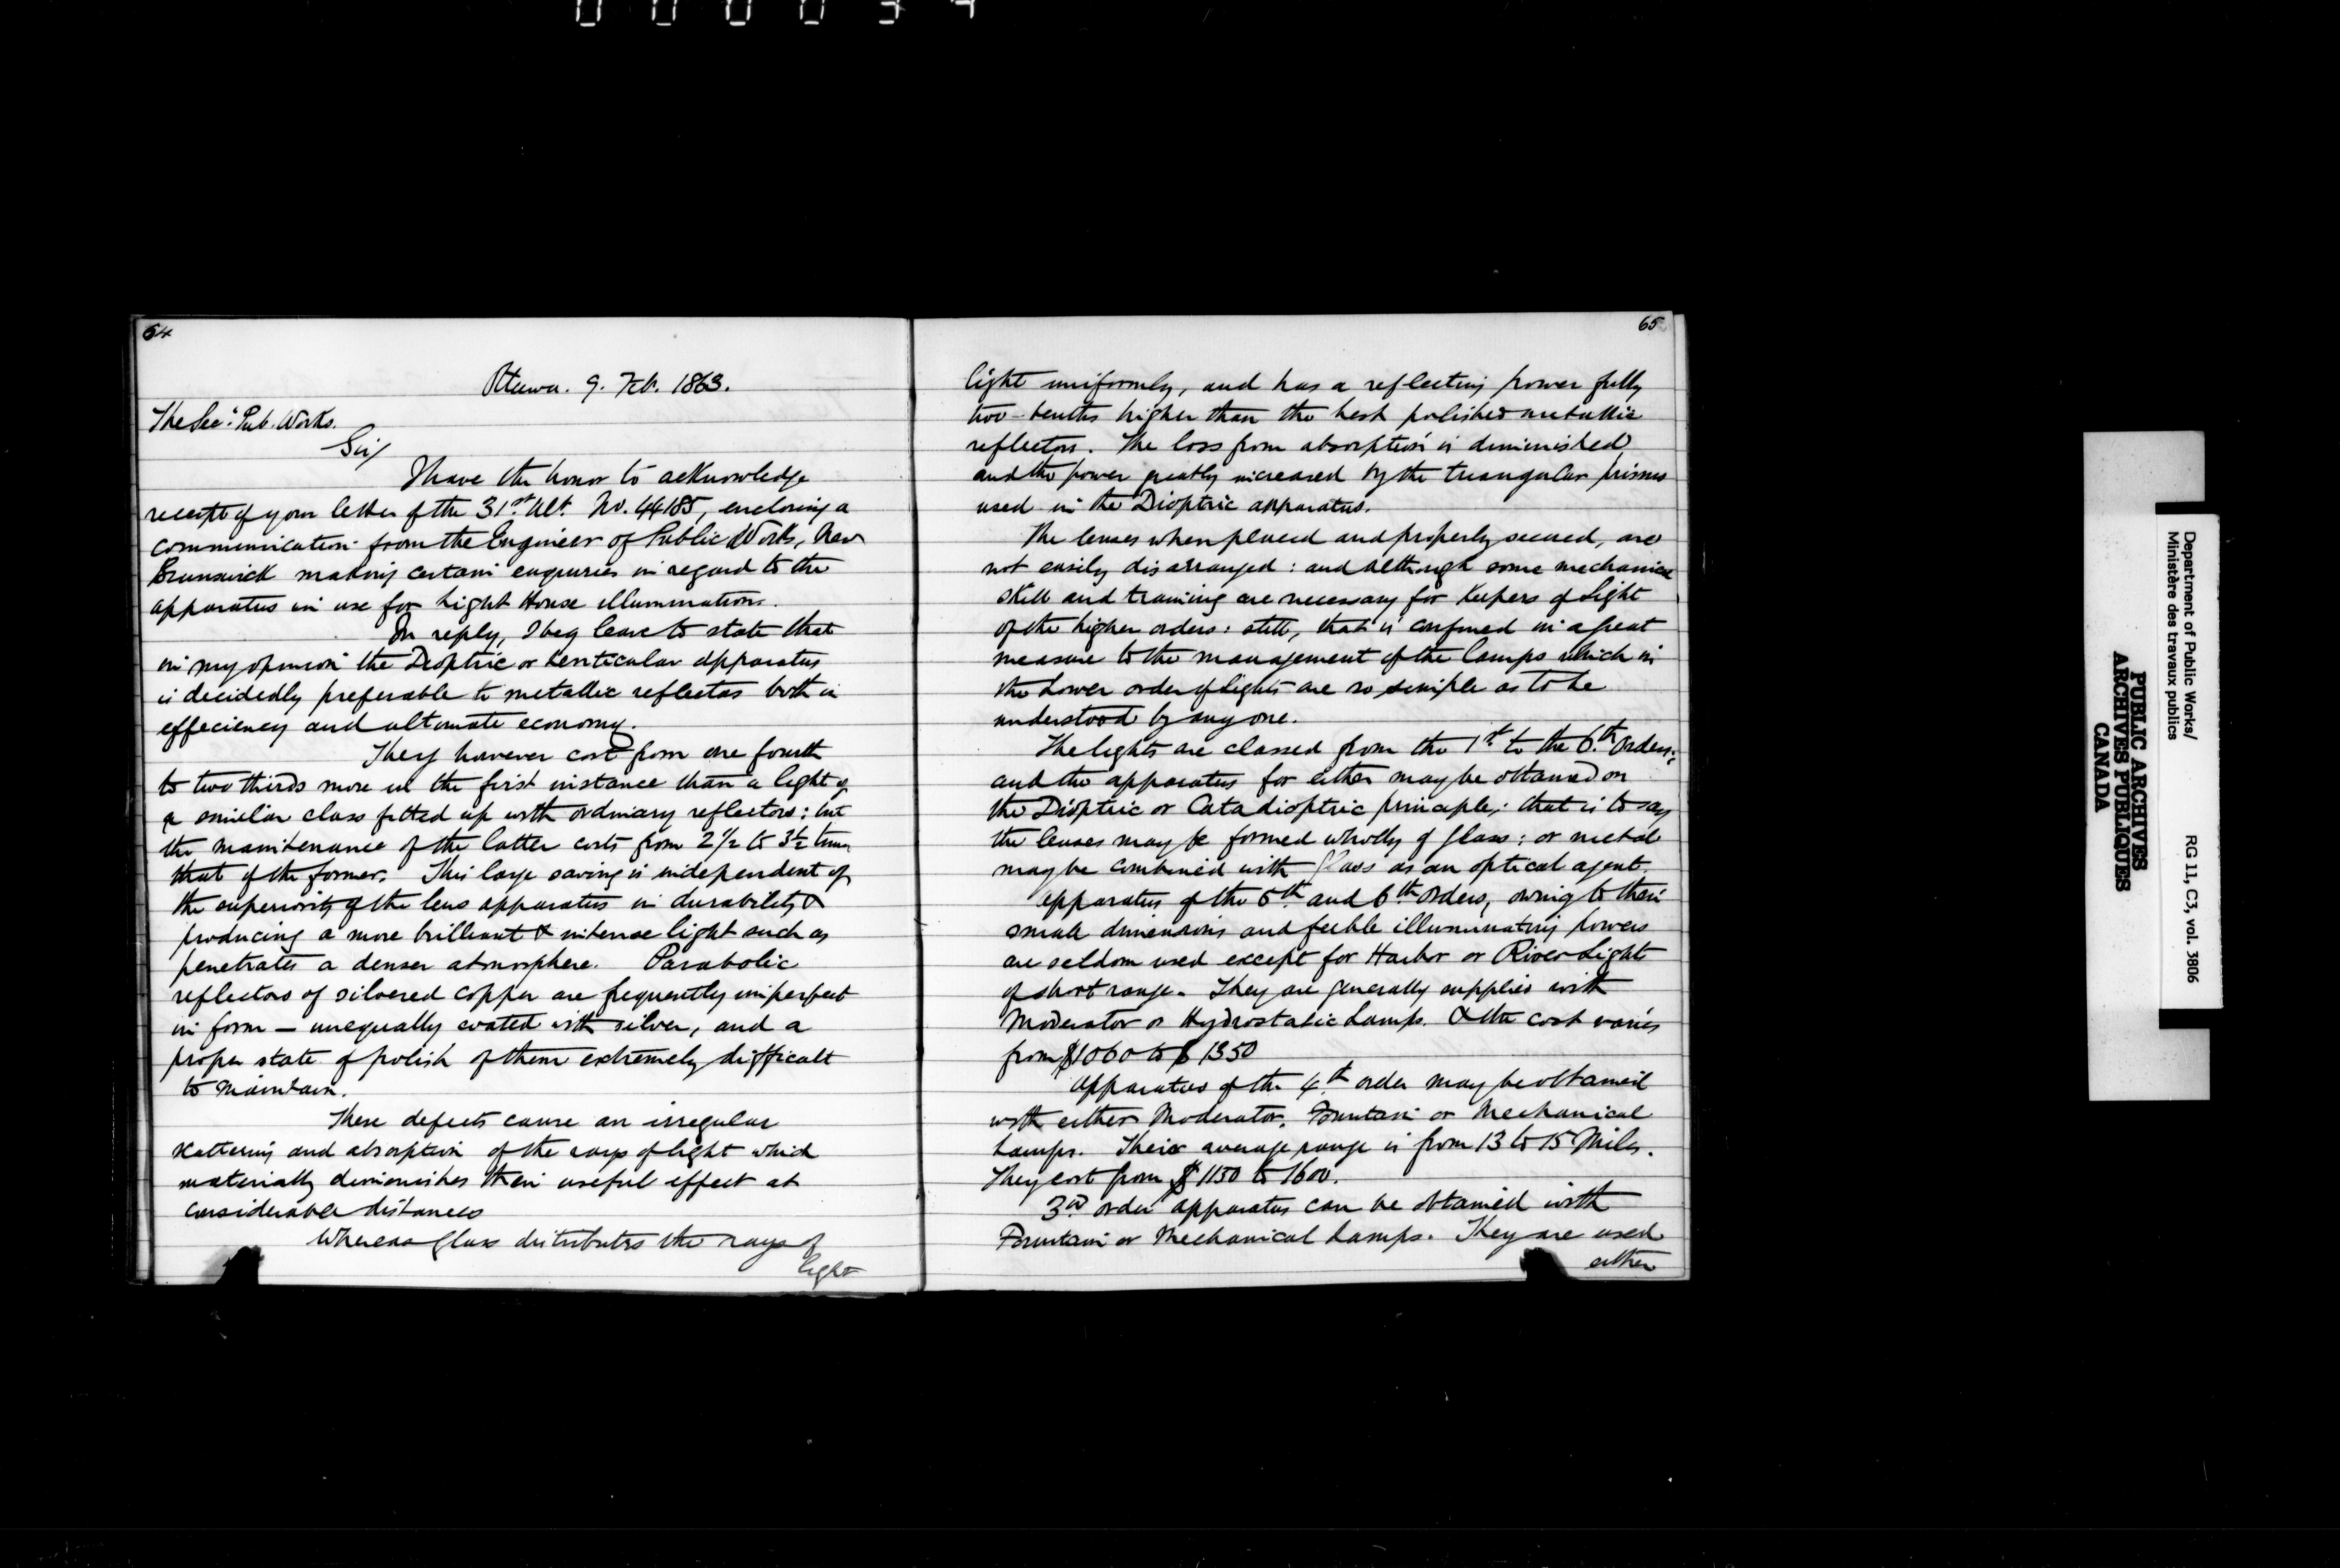 64
Ottawa. 9. Feb. 1863.
The Secy. Pub. Works.
Sir/
I have the honor to acknowledge
receipt of your letter of the 31st Ult. No. 44185, enclosing a
communication from the Engineer of Public Works, New
Brunswick making certain enquiries in regard to the
apparatus in use for Light House illumination.
In reply, I beg leave to state that
in my opinion the Dioptric or Lenticular apparatus
is decidedly preferable to metallic reflectors both in
effeciency and ultimate economy.
They however cost from one fourth
to two thirds more in the first instance than a light of
a similar class fitted up with ordinary reflectors: but
the maintenance of the latter costs from 2 1/2 to 3 1/2 times
that of the former. This large saving is independent of
the superiority of the lens apparatus in durability &
producing a more brilliant & intense light such as
penetrates a denser atmosphere. Parabolic
reflectors of silvered copper are frequently imperfect
in form — unequally coated with silver, and a
proper state of polish of them extremely difficult
to maintain.
These defects cause an irregular
scattering and absorption of the rays of light which
materially diminishes their useful effect at
considerable distances
Whereas glass distributes the rays of
light
65
light uniformly, and has a reflecting power fully
two-tenths higher than the best polished metallic
reflectors. The loss from absorption is diminished
and the power greatly increased by the triangular prisms
used in the Dioptric apparatus.
The lenses when placed and properly secured, are
not easily disarranged: and although some mechanical
skill and training are necessary for Keepers of Light
of the higher orders: still, that is confined in a great
measure to the management of the lamps which in
the Lower order of Lights are so simple as to be
understood by any one.
The lights are classed from the 1st to the 6th Orders;
and the apparatus for either may be obtained on
the Dioptric or Catadioptric principle; that is to say
the lenses may be formed wholly of glass: or metal
may be combined with glass as an optical agent.
Apparatus of the 5th and 6th Orders, owing to their
small dimensions and feeble illuminating powers
are seldom used except for Harbor or River Light
of short range. They are generally supplied with
Moderator or Hydrostatic Lamps. & the cost varies
from $1060 to $1350
Apparatus of the 4th order may be obtained
with either Moderator, Fountain or Mechanical
Lamps. Their average range is from 13 to 15 Miles.
They cost from $1150 to 1600.
3rd order apparatus can be obtained with
Fountain or Mechanical Lamps. They are used
either
Department of Public Works/
Ministère des travaux publics
RG 11, C3, vol. 3806
PUBLIC ARCHIVES
ARCHIVES PUBLIQUES
CANADA